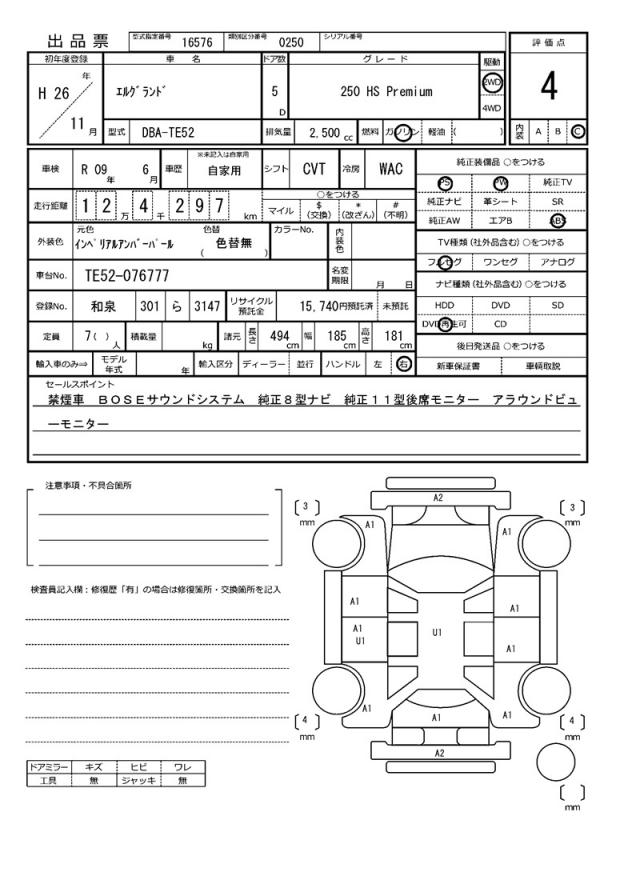 出品票 型式指定番号 16576 類別区分番号 0250 シリアル番号
評価点
4
内装 A B C
初年度登録 車名 ドア数 グレード 駆動
H 26 年 11 月
ｴﾙｸﾞﾗﾝﾄﾞ
5 D
250 HS Premium
2WD
4WD
型式 DBA-TE52 排気量 2,500 cc 燃料 ガソリン 軽油 ( )
車検 R 09 年 6 月 車歴 ※未記入は自家用 自家用 シフト CVT 冷房 WAC
走行距離 1 2 万 4 千 2 9 7 km
○をつける
マイル $(交換) *(改ざん) #(不明)
外装色 元色 ｲﾝﾍﾟﾘｱﾙｱﾝﾊﾞｰﾊﾟｰﾙ 色替 ( 色替無 ) カラーNo. 内装色
車台No. TE52-076777 名変期限 月 日
登録No. 和泉 301 ら 3147 リサイクル預託金 15,740円預託済 未預託
定員 7( )人 積載量 kg 諸元 長さ 494 cm 幅 185 cm 高さ 181 cm
輸入車のみ⇒ モデル年式 年 輸入区分 ディーラー 並行 ハンドル 左 右
純正装備品 ○をつける
PS PW 純正TV
純正ナビ 革シート SR
純正AW エアB ABS
TV種類(社外品含む) ○をつける
フルセグ ワンセグ アナログ
ナビ種類(社外品含む) ○をつける
HDD DVD SD
DVD再生可 CD
後日発送品 ○をつける
新車保証書 車輌取説
セールスポイント
禁煙車　ＢＯＳＥサウンドシステム　純正８型ナビ　純正１１型後席モニター　アラウンドビュ
ーモニター
注意事項・不具合箇所
検査員記入欄：修復歴「有」の場合は修復箇所・交換箇所を記入
ドアミラー キズ ヒビ ワレ
工具 無 ジャッキ 無
A2
[ 3 ] mm
[ 3 ] mm
A1
A1
A1
A1
A1
U1
U1
A1
A1
A1
A1
[ 4 ] mm
[ 4 ] mm
A2
[ ] mm